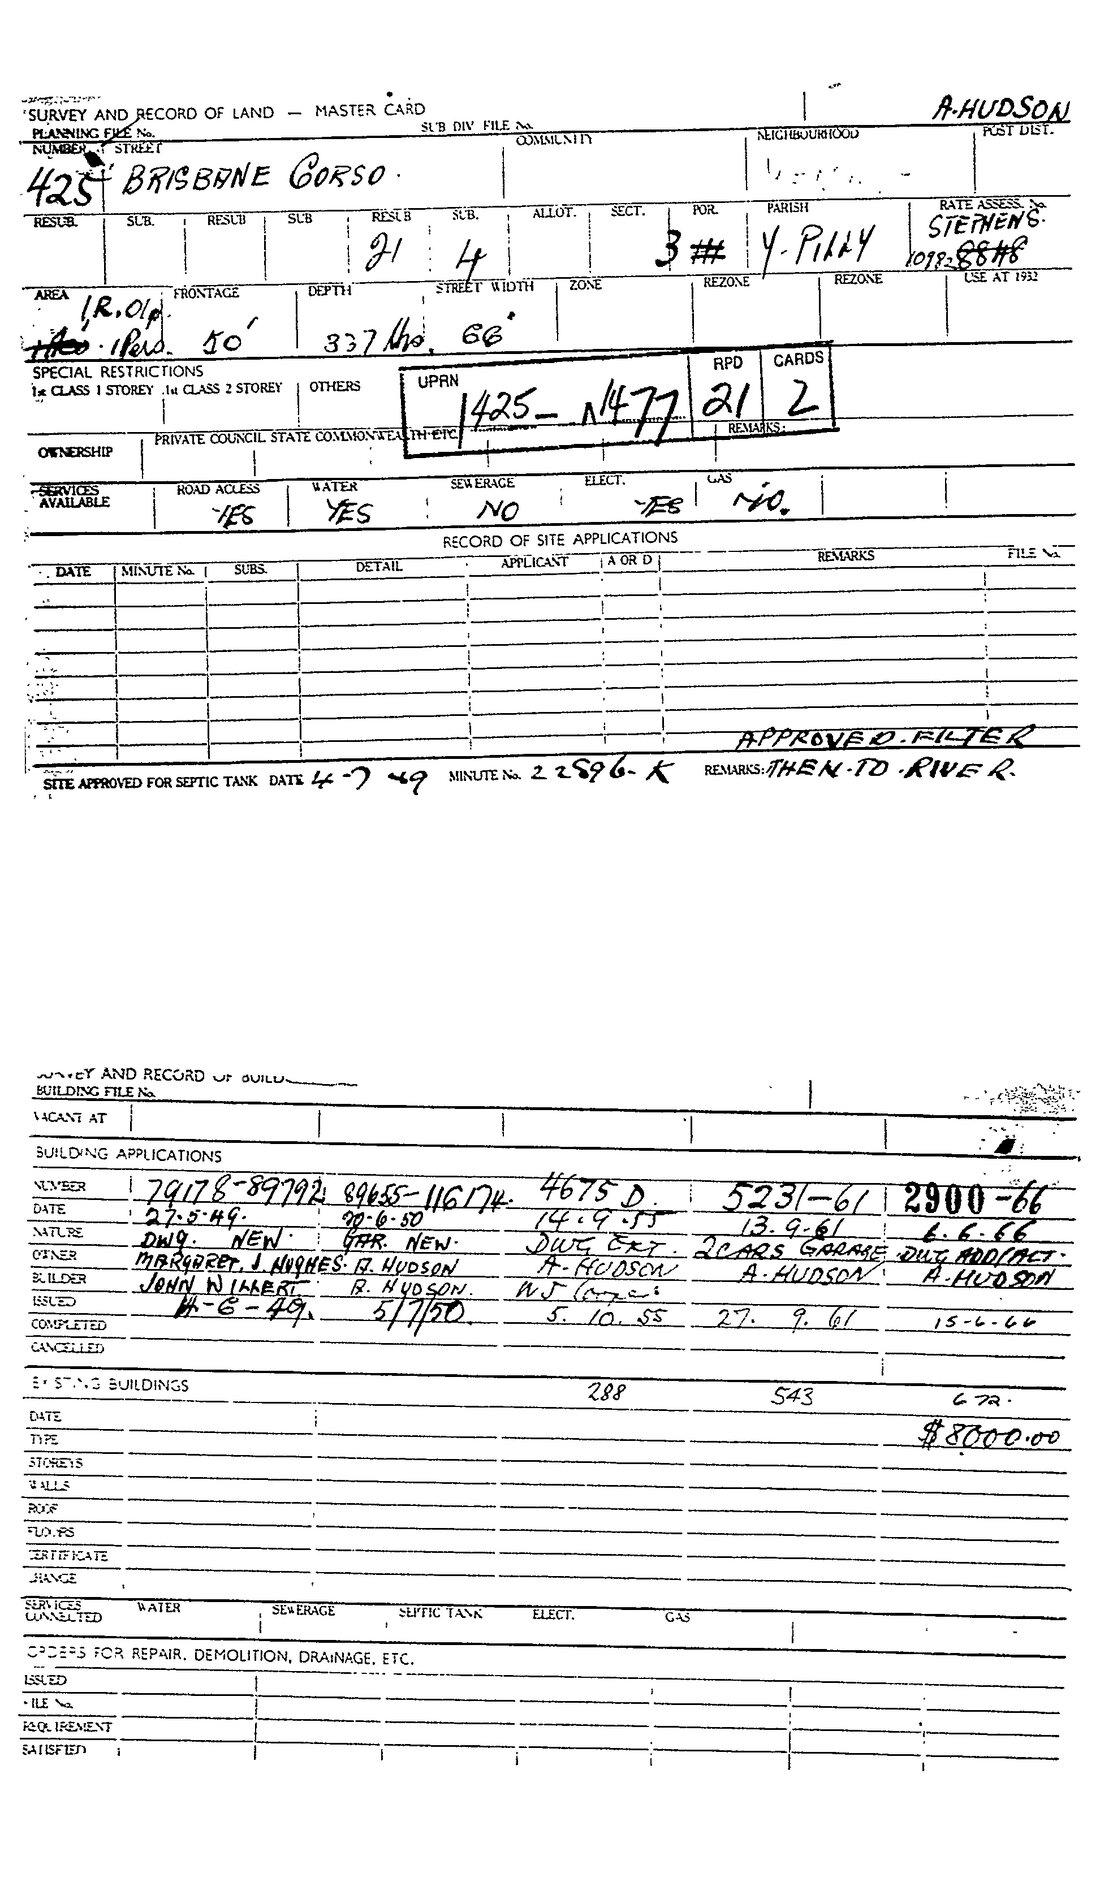 SURVEY AND RECORD OF LAND — MASTER CARD
A. HUDSON
PLANNING FILE No. SUB DIV FILE No.
NUMBER STREET COMMUNITY NEIGHBOURHOOD POST DIST.
425 BRISBANE CORSO.
RESUB. SUB. RESUB SUB RESUB SUB. ALLOT. SECT. POR. PARISH RATE ASSESS. No.
STEPHENS.
21 4 3 Y-PILLY
AREA FRONTAGE DEPTH STREET WIDTH ZONE REZONE REZONE USE AT 1932
1R.01p.
1 Pers. 50' 337 lks. 66'
SPECIAL RESTRICTIONS
1st CLASS 1 STOREY 1st CLASS 2 STOREY OTHERS
UPRN RPD CARDS
1425- N1477 21 2
REMARKS:
OWNERSHIP PRIVATE COUNCIL STATE COMMONWEALTH ETC
SERVICES AVAILABLE ROAD ACCESS WATER SEWERAGE ELECT. GAS
YES YES NO YES NO.
RECORD OF SITE APPLICATIONS
DATE MINUTE No. SUBS. DETAIL APPLICANT A OR D REMARKS FILE No.
APPROVED. FILTER
SITE APPROVED FOR SEPTIC TANK DATE 4-7-49 MINUTE No. 22896-K REMARKS: THEN. TO. RIVER.
SURVEY AND RECORD OF BUILD
BUILDING FILE No.
VACANT AT
BUILDING APPLICATIONS
NUMBER 79178-89792 89655-116174. 4675 D. 5231-61 2900-66
DATE 27.5.49. 20-6-50 14.9.55 13.9.61 6.6.66
NATURE DWG. NEW. GAR. NEW. DWG EXT. 2CARS GARAGE DWG ADD/ALT.
OWNER MARGARET. J. HUGHES. A. HUDSON A-HUDSON A. HUDSON A. HUDSON
BUILDER JOHN WILLERT A. HUDSON. WJ
ISSUED 14-6-49. 5/7/50. 5. 10. 55 27. 9. 61 15-6-66
COMPLETED
CANCELLED
EXISTING BUILDINGS 288 543 672.
DATE $8000.00
TYPE
STOREYS
WALLS
ROOF
FLOORS
CERTIFICATE
CHANGE
SERVICES CONNECTED WATER SEWERAGE SEPTIC TANK ELECT. GAS
ORDERS FOR REPAIR, DEMOLITION, DRAINAGE, ETC.
ISSUED
FILE No.
REQUIREMENT
SATISFIED